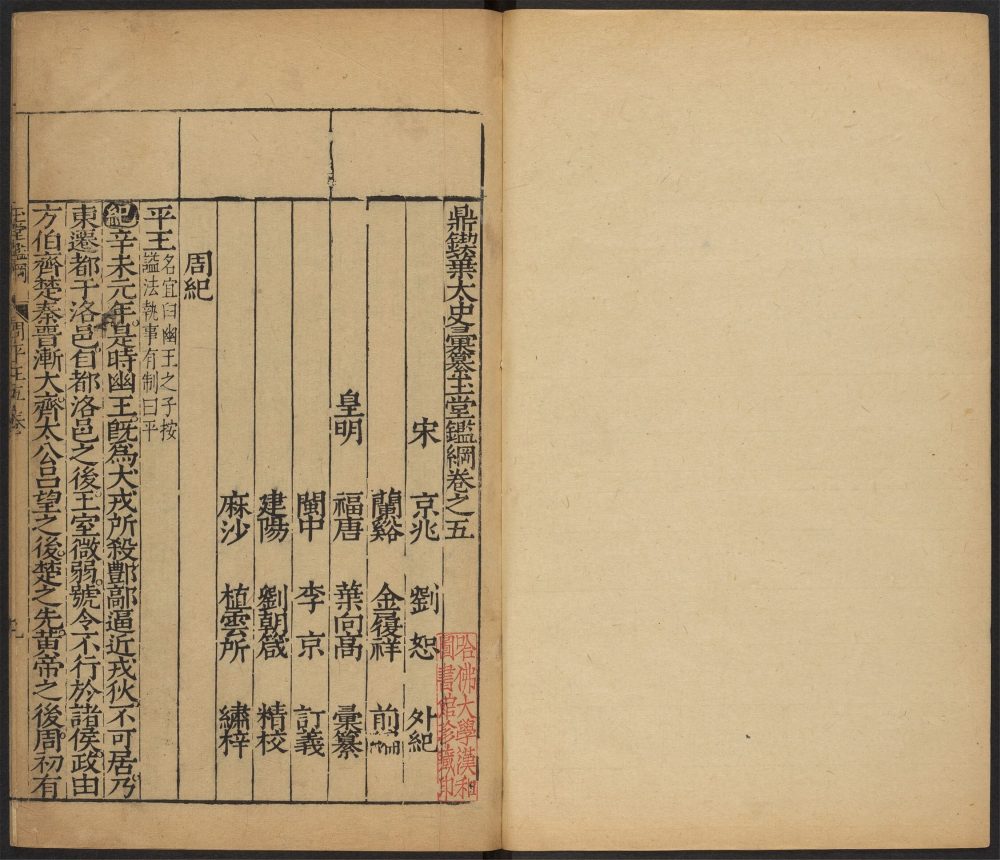 鼎鍥葉太史彙纂玉堂鑑綱卷之五
宋 京兆 劉恕 外紀
蘭谿 金履祥 前編
皇明 福唐 葉向高 彙纂
閩中 李京 訂義
建陽 劉朝箴 精校
麻沙 植雲所 繡梓
周紀
平王 名宜臼幽王之子按
謚法執事有制曰平
紀辛未元年是時幽王既為犬戎所殺酆鄗逼近戎狄不可居乃
東遷都于洛邑自都洛邑之後王室微弱號令不行於諸侯政由
方伯齊楚秦晋漸大齊太公呂望之後楚之先黃帝之後周初有
玉堂鑑綱 周平王五卷
哈佛大學漢和
圖書館珍藏印